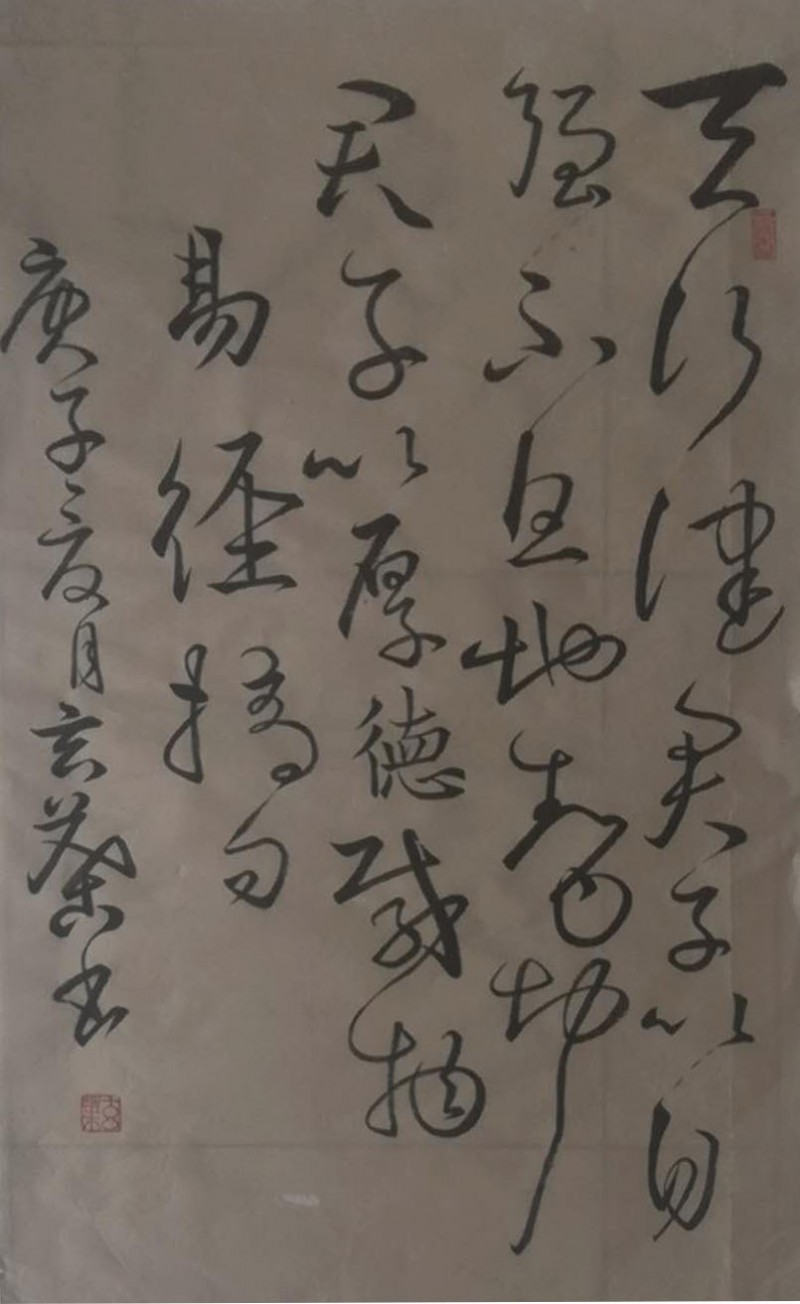 天行健君子以自
强不息地势坤
君子以厚德载物
易经摘句
庚子夏月书